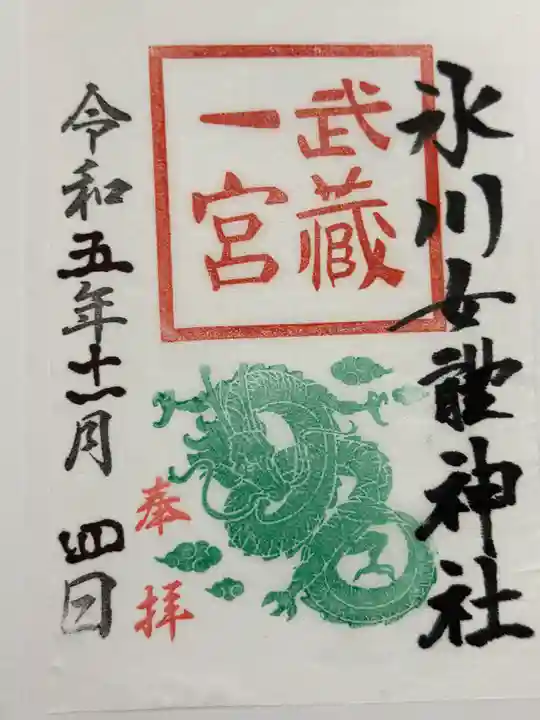 氷川女體神社
武蔵
一宮
奉拝
令和五年十一月四日